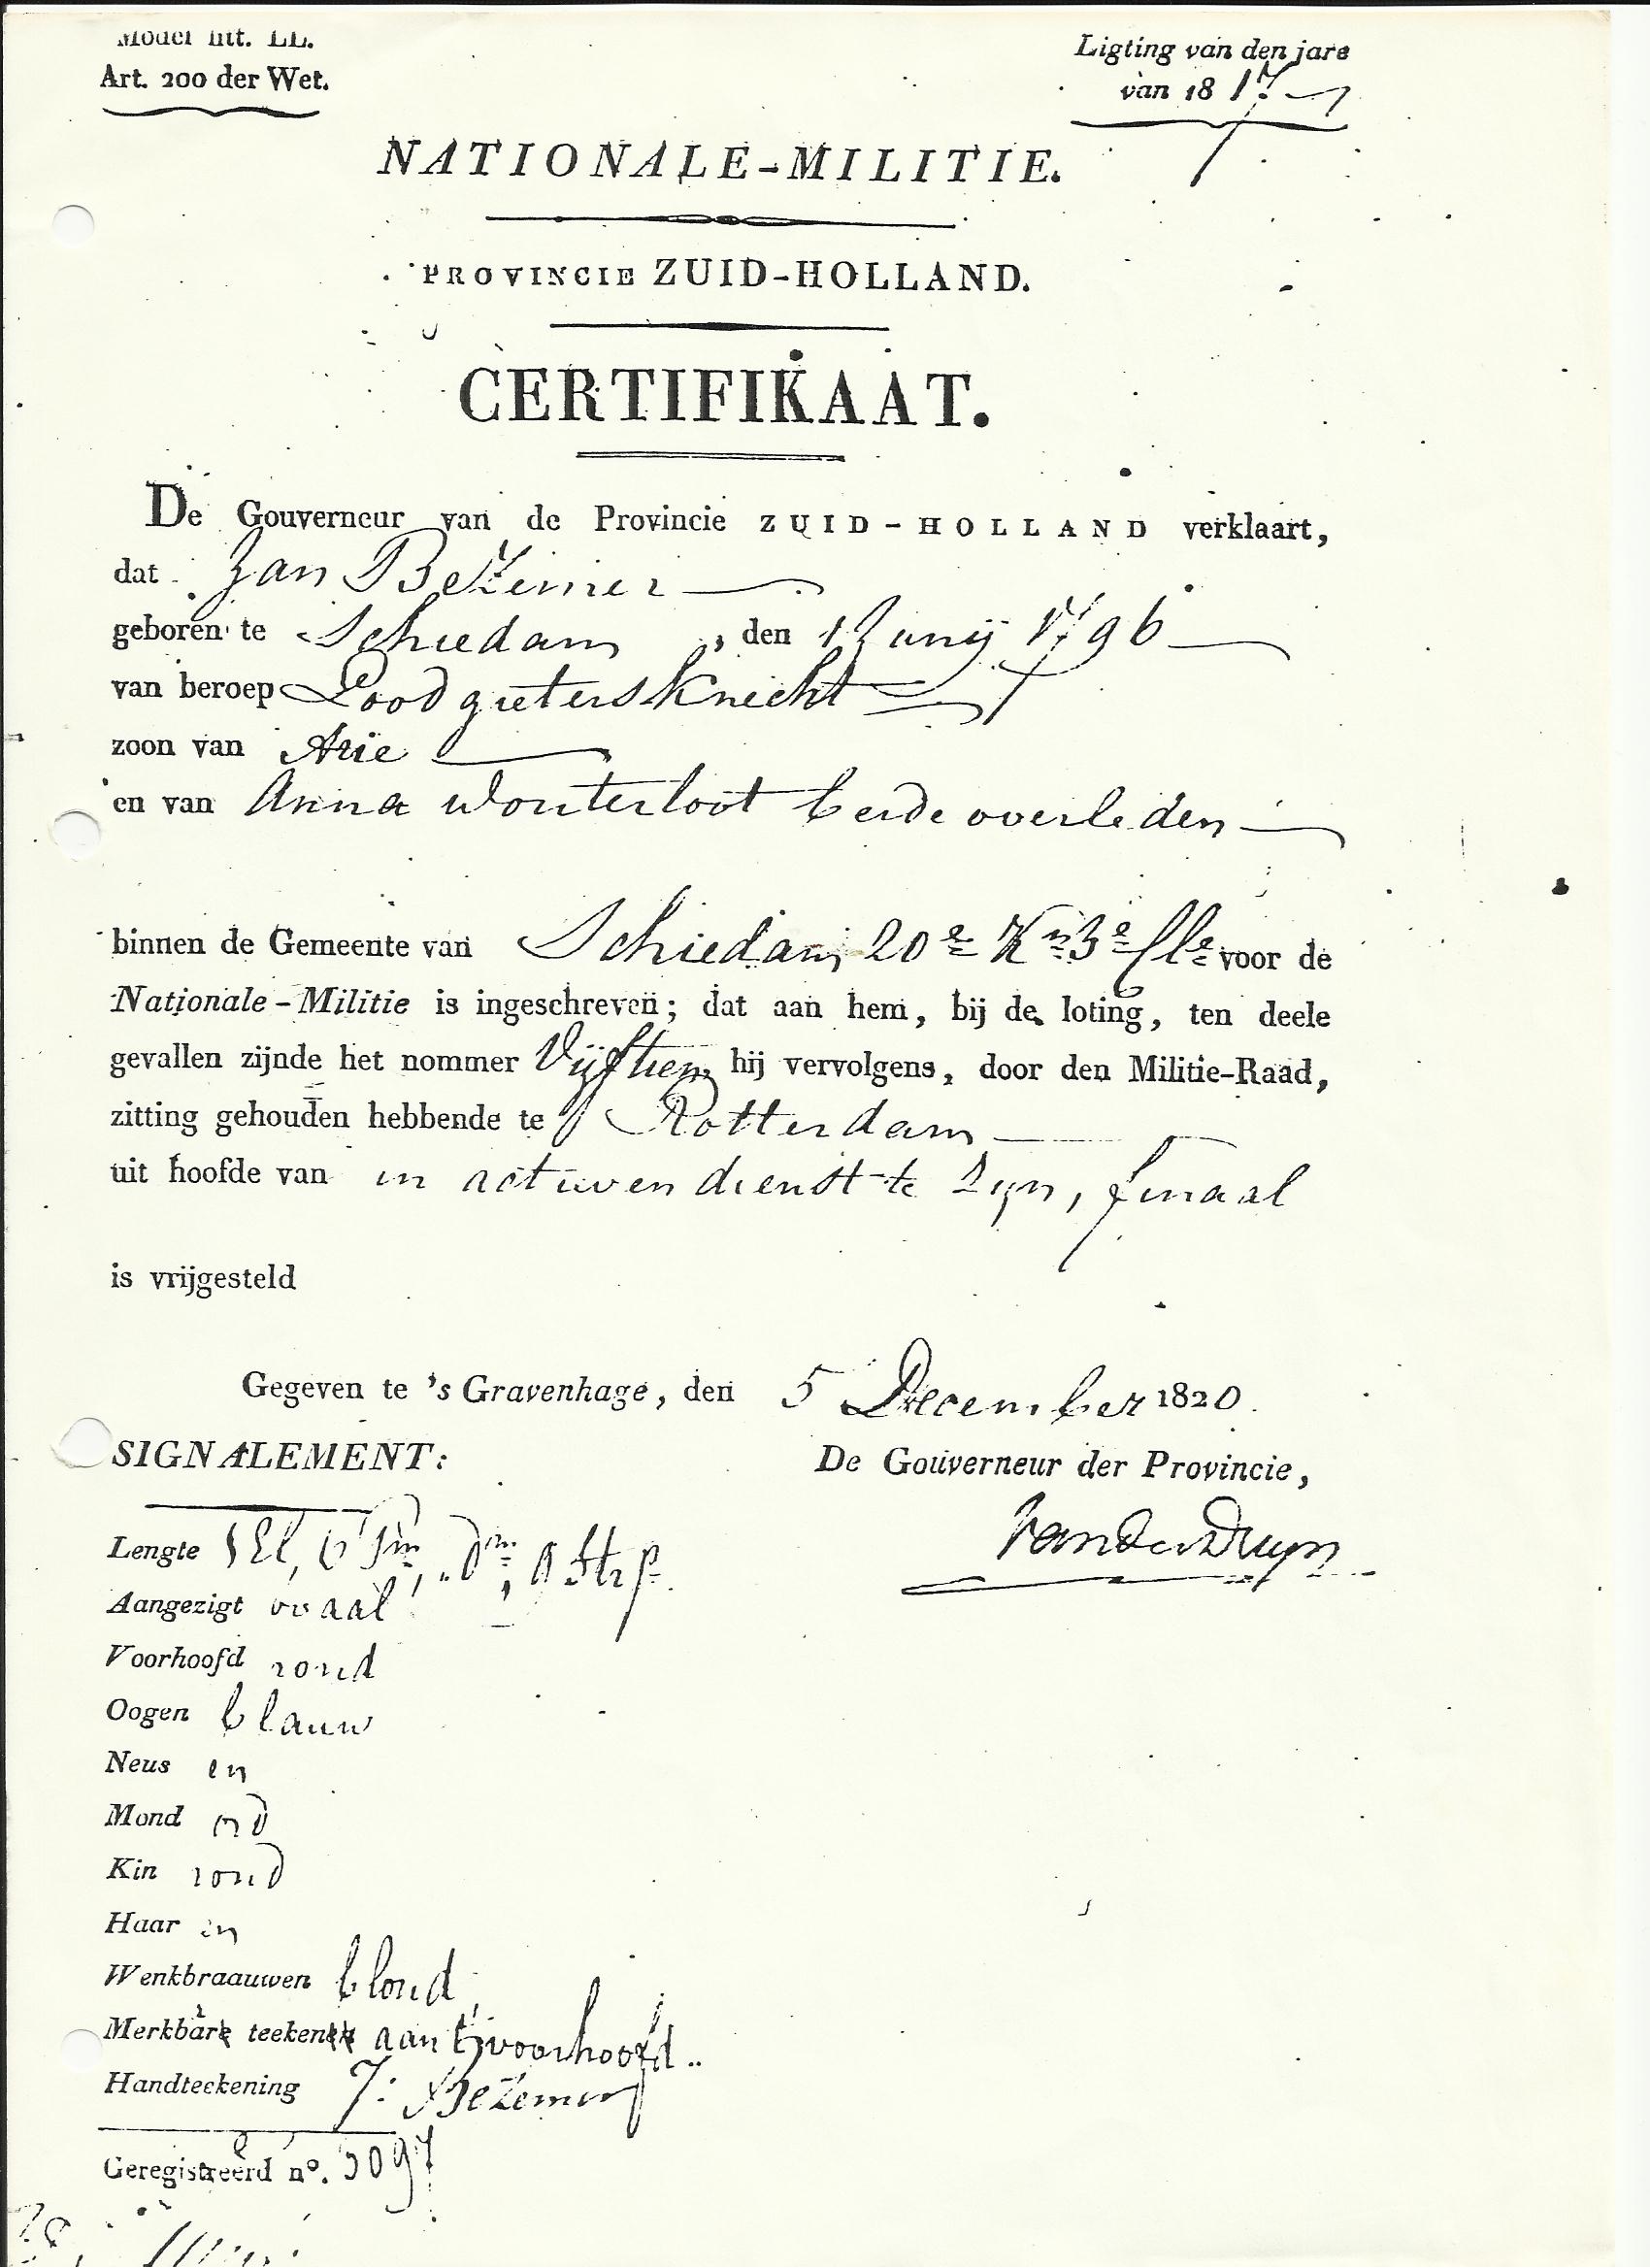 Model litt. LL.
Art. 200 der Wet.
Ligting van den jare
van 1817
NATIONALE-MILITIE.
PROVINCIE ZUID-HOLLAND.
CERTIFIKAAT.
De Gouverneur van de Provincie ZUID-HOLLAND verklaart,
dat Jan Bezemer
geboren te Schiedam, den 1 Junij 1796
van beroep Loodgietersknecht
zoon van Arie
en van Anna Wouterloot beide overleden
binnen de Gemeente van Schiedam 20e Kn 3e Cle voor de
Nationale-Militie is ingeschreven; dat aan hem, bij de loting, ten deele
gevallen zijnde het nommer Vijftien hij vervolgens, door den Militie-Raad,
zitting gehouden hebbende te Rotterdam
uit hoofde van in activen dienst te zyn, finaal
is vrijgesteld
Gegeven te 's Gravenhage, den 5 December 1820.
De Gouverneur der Provincie,
Van der Duyn
SIGNALEMENT:
Lengte 1 El, 6 Pm, „ Dm, 9 Strp.
Aangezigt ovaal
Voorhoofd rond
Oogen blauw
Neus en
Mond ord
Kin rond
Haar en
Wenkbraauwen blond
Merkbare teekenen aan 't voorhoofd
Handteekening J: Bezemer
Geregistreerd no. 5097